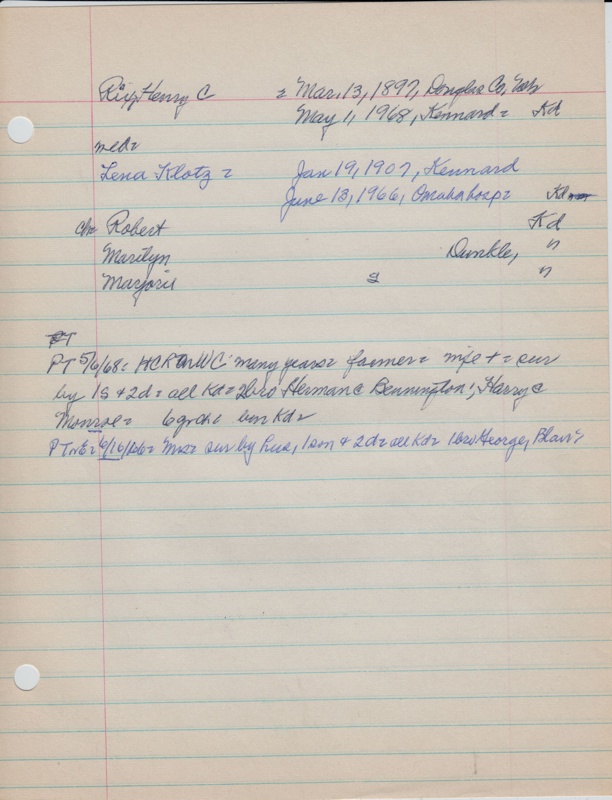 Rix, Henry C = Mar. 13, 1897, Douglas Co, Neb
May 1, 1968, Kennard = Kd
med=
Lena Klotz = Jan 19, 1907, Kennard
June 13, 1966, Omaha hosp = Kd
ch= Robert Kd
Marilyn Dunkle, "
Marjorie S "
PT
PT 5/6/68= HCR in WC many years= farmer= wife += sur
by 1S + 2d= all Kd= 2bro Herman C Bennington; Harry C
Monroe= 6 grch= bur Kd=
PT+E= 6/16/66= Mrs= sur by hus, 1 son + 2d= all Kd= 1bro George, Blair=